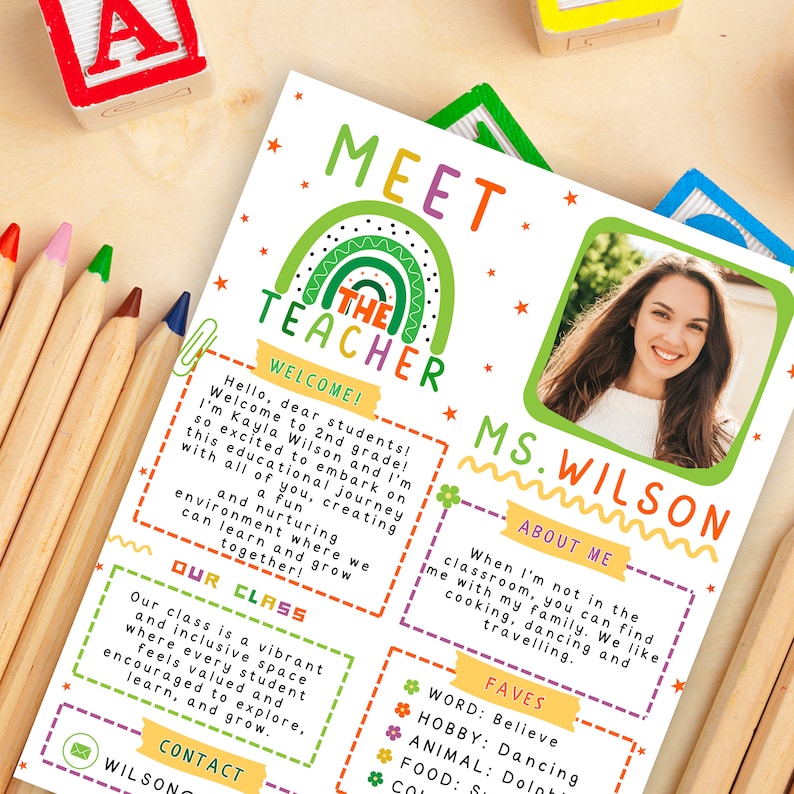 A
MEET
THE
TEACHER
MS. WILSON
WELCOME!
Hello, dear students!
Welcome to 2nd grade!
I'm Kayla Wilson and I'm
so excited to embark on
this educational journey
with all of you, creating
a fun
and nurturing
environment where we
can learn and grow
together!
ABOUT ME
When I'm not in the
classroom, you can find
me with my family. We like
cooking, dancing and
travelling.
OUR CLASS
Our class is a vibrant
and inclusive space
where every student
feels valued and
encouraged to explore,
learn, and grow.
FAVES
WORD: Believe
HOBBY: Dancing
ANIMAL:
FOOD:
CONTACT